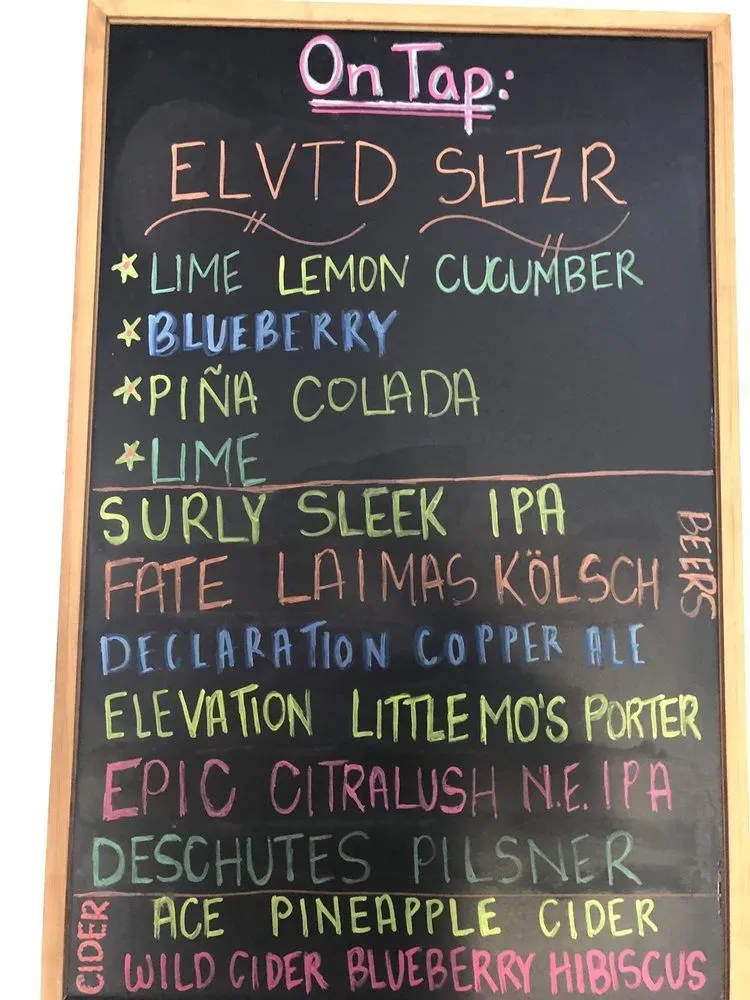 On Tap:
ELVTD SLTZR
LIME LEMON CUCUMBER
BLUEBERRY
PIÑA COLADA
LIME
BEERS
SURLY SLEEK IPA
FATE LAIMAS KÖLSCH
DECLARATION COPPER ALE
ELEVATION LITTLE MO'S PORTER
EPIC CITRALUSH N.E. IPA
DESCHUTES PILSNER
CIDER
ACE PINEAPPLE CIDER
WILD CIDER BLUEBERRY HIBISCUS